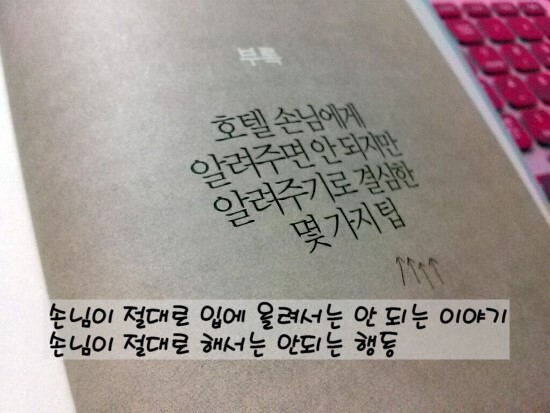 부록
호텔 손님에게
알려주면 안 되지만
알려주기로 결심한
몇 가지 팁
손님이 절대로 입에 올려서는 안 되는 이야기
손님이 절대로 해서는 안되는 행동